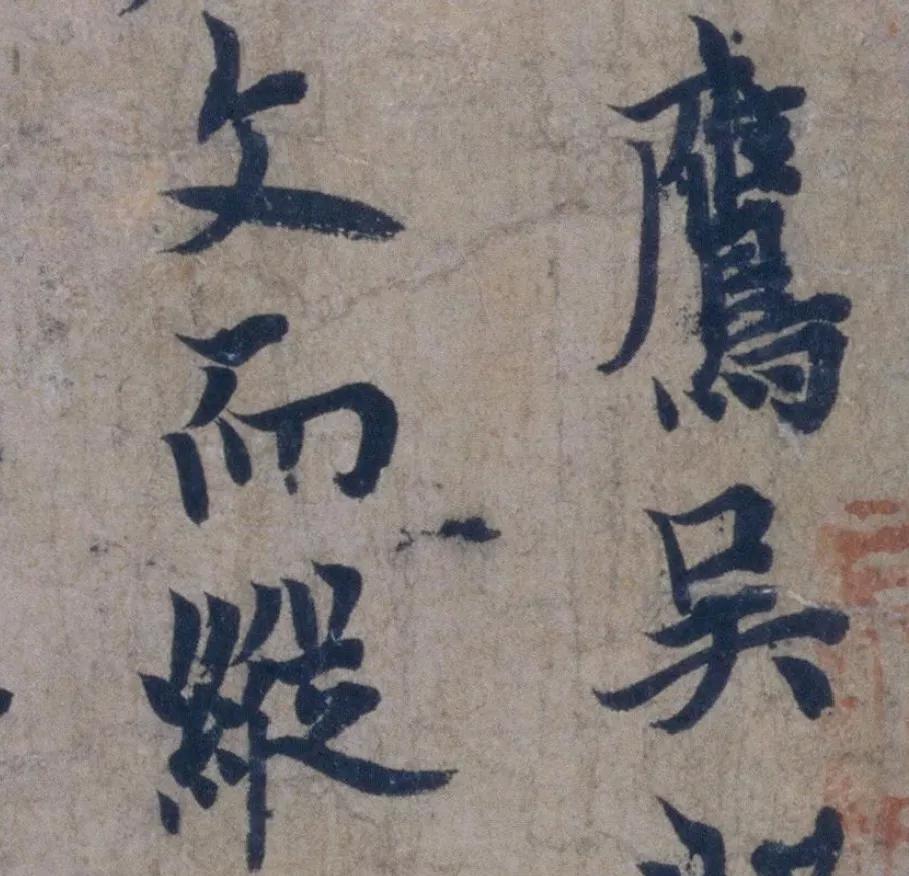 鷹吳
文而縱